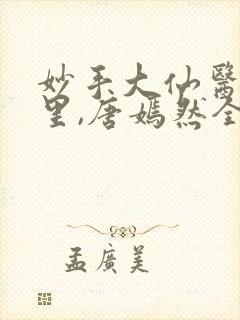 妙手大仙醫
里,唐嫣然全
孟廣美